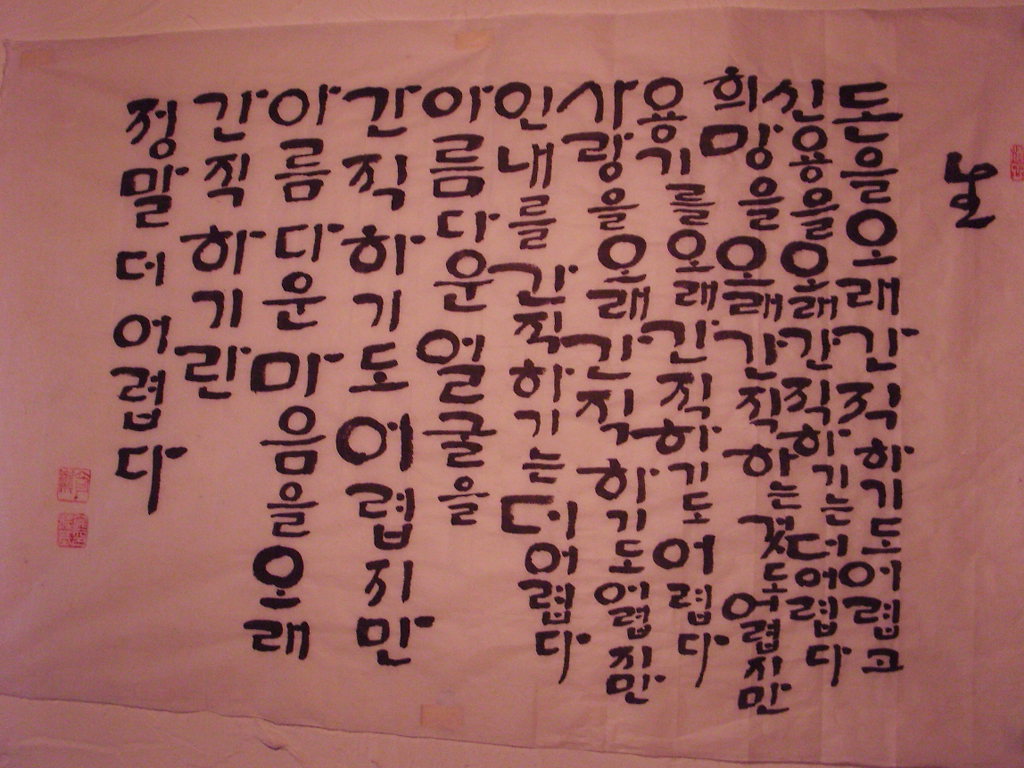 돈을 오래 간직하기도 어렵고
신용을 오래 간직하기는 더 어렵다
희망을 오래 간직하는 것도 어렵지만
용기를 오래 간직하기도 어렵다
사랑을 오래 간직하기도 어렵지만
인내를 간직하기는 더 어렵다
아름다운 얼굴을
간직하기도 어렵지만
아름다운 마음을 오래
간직하기란
정말 더 어렵다